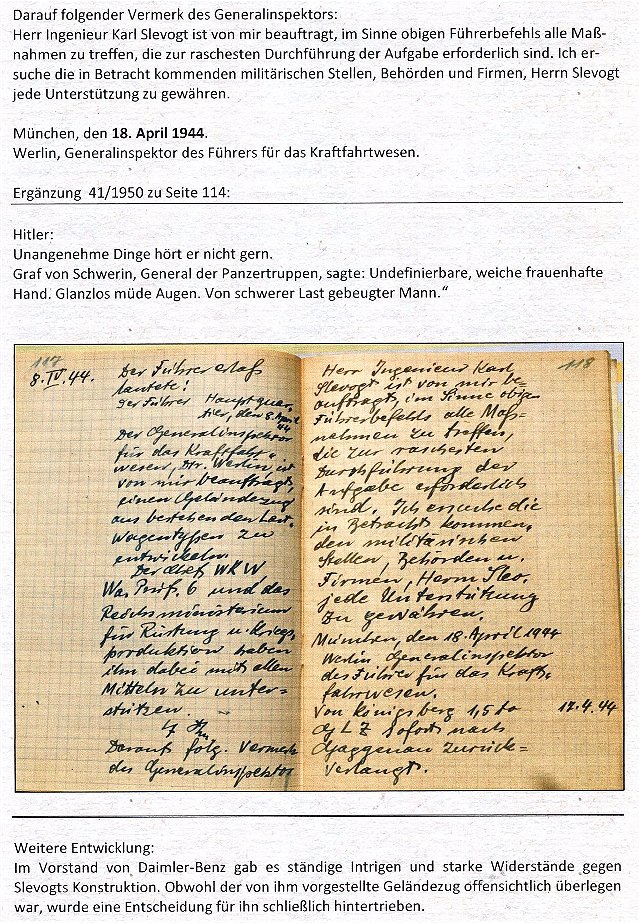 Darauf folgender Vermerk des Generalinspektors:
Herr Ingenieur Karl Slevogt ist von mir beauftragt, im Sinne obigen Führerbefehls alle Maß-
nahmen zu treffen, die zur raschesten Durchführung der Aufgabe erforderlich sind. Ich er-
suche die in Betracht kommenden militärischen Stellen, Behörden und Firmen, Herrn Slevogt
jede Unterstützung zu gewähren.
München, den 18. April 1944.
Werlin, Generalinspektor des Führers für das Kraftfahrtwesen.
Ergänzung 41/1950 zu Seite 114:
Hitler:
Unangenehme Dinge hört er nicht gern.
Graf von Schwerin, General der Panzertruppen, sagte: Undefinierbare, weiche frauenhafte
Hand. Glanzlos müde Augen. Von schwerer Last gebeugter Mann.“
117
8.IV.44.
Der Führererlaß
lautete:
Der Führer Hauptquar-
tier, den 8. April
44
Der Generalinspektor
für das Kraftfahrt-
wesen, Dir. Werlin, ist
von mir beauftragt,
einen Geländezug
aus bestehenden Last-
wagentypen zu
entwickeln.
Der Chef WKW
Wa Prüf. 6 und das
Reichsministerium
für Rüstung u. Kriegs-
produktion haben
ihm dabei mit allen
Mitteln zu unter=
stützen.
Darauf folg. Vermerk
des Generalinspektor
118
Herr Ingenieur Karl
Slevogt ist von mir be-
auftragt, im Sinne obig.
Führerbefehls alle Maß-
nahmen zu treffen,
die zur raschesten
Durchführung der
Aufgabe erforderlich
sind. Ich ersuche die
in Betracht kommen-
den militärischen
Stellen, Behörden u.
Firmen, Herrn Slev.
jede Unterstützung
zu gewähren.
München, den 18. April 1944
Werlin Generalinspektor
des Führer für das Kraft-
fahrwesen.
Von Königsberg 1,5 to 17.4.44
LZ Sofort nach
Gaggenau zurück=
verlangt.
Weitere Entwicklung:
Im Vorstand von Daimler-Benz gab es ständige Intrigen und starke Widerstände gegen
Slevogts Konstruktion. Obwohl der von ihm vorgestellte Geländezug offensichtlich überlegen
war, wurde eine Entscheidung für ihn schließlich hintertrieben.